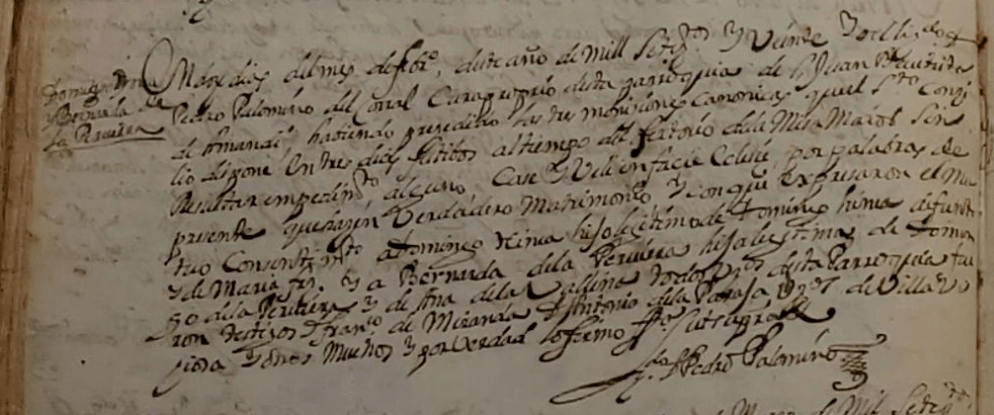 Domingo
Bernarda de
la Peruiera
dias del mes de febro, deste año de Mill Setes. y Veinte y ocho,
Pedro Palomino del Cura propio desta parroquia de S. Juan
de Amandi haviendo precedido las tres moniziones Canonicas, que el Sto. Conzi
lio dispone En tres dias festibos al tiempo del de la Misa Maior Sin
Resultar empedimto. alguno Case y Vele in facie Eclesie, por palabras de
presente que hazen Verdadero Matrimonio, y con que Expresaron el Mu
tuo Consentimto. a Domingo hijo lexitimo de Domingo difunto
y de Maria y a Bernarda dela Peruiera hija lexitima de Domin
go dela Peruiera y de Ana dela todos vos. desta Parroquia fue
ron testigos Franco. de Miranda Antonio dela vos. de Villavi
ziosa y otros Muchos y por verdad lo firmo
Pedro Palomino